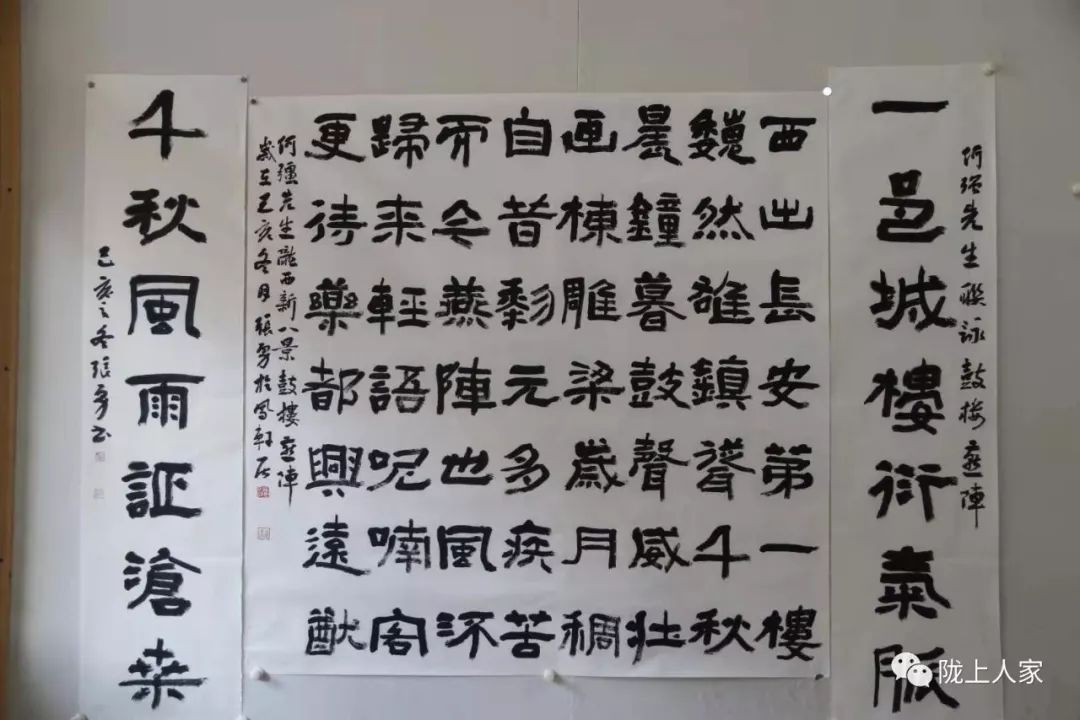 何强先生聯詠鼓樓燕陣
一邑城樓衍氣脈
西出長安第一樓
巍然雄鎮聳千秋
晨鐘暮鼓聲威壯
画棟雕梁歲月稠
自昔黎元多疾苦
而今燕陣也風流
歸来輕語呢喃客
更待樂都興遠猷
何彊先生隴西新八景鼓樓燕陣
歲在己亥冬月張勇於鳳軒居
千秋風雨証滄桒
己亥之冬張勇书
陇上人家